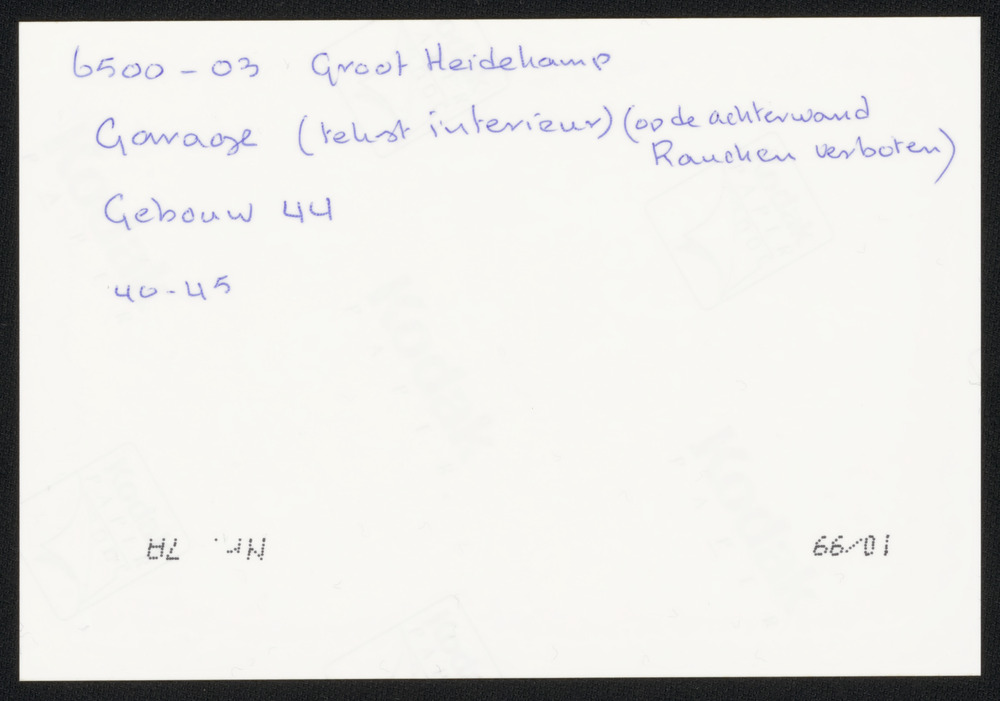 6500-03 Groot Heidekamp
Garage (tekst interieur) (op de achterwand
Rauchen verboten)
Gebouw 44
40-45
Nr. 7A
10/99